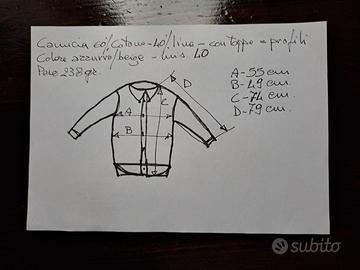 Camicia 60% Cotone - 40% lino - con toppe e profili
Colore azzurro/beige - mis. 40
Peso 238 gr.
A - 55 cm
B - 49 cm.
C - 74 cm.
D - 79 cm.
D
C
A
B
subito